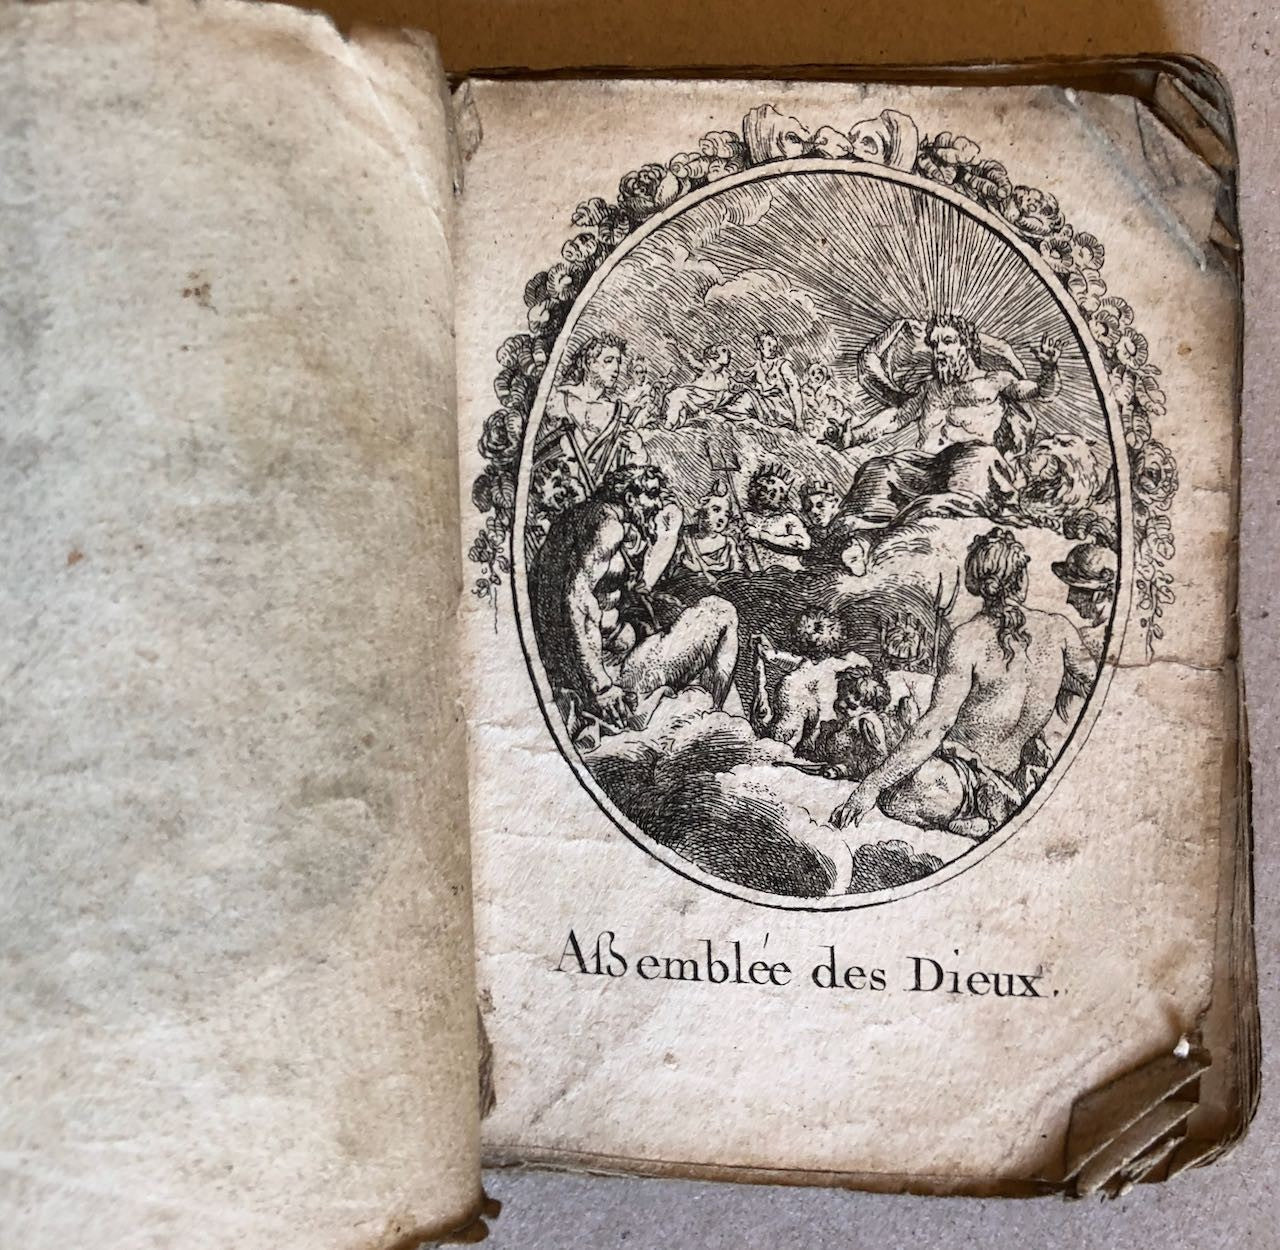 Aſsemblée des Dieux.